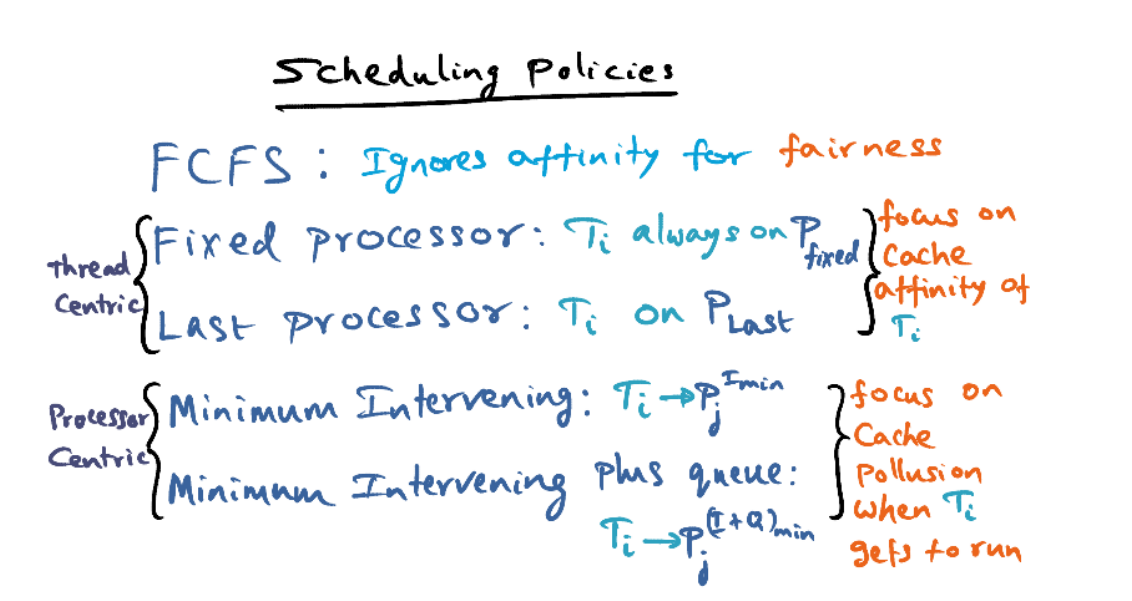 Scheduling Policies
FCFS : Ignores affinity for fairness
Thread Centric
Fixed processor: Ti always on Pfixed
Last processor: Ti on PLast
focus on
Cache
affinity of
Ti
Processor Centric
Minimum Intervening: Ti → Pj^Imin
Minimum Intervening plus queue:
Ti → Pj^(I+Q)min
focus on
Cache
Pollusion
when Ti
gets to run